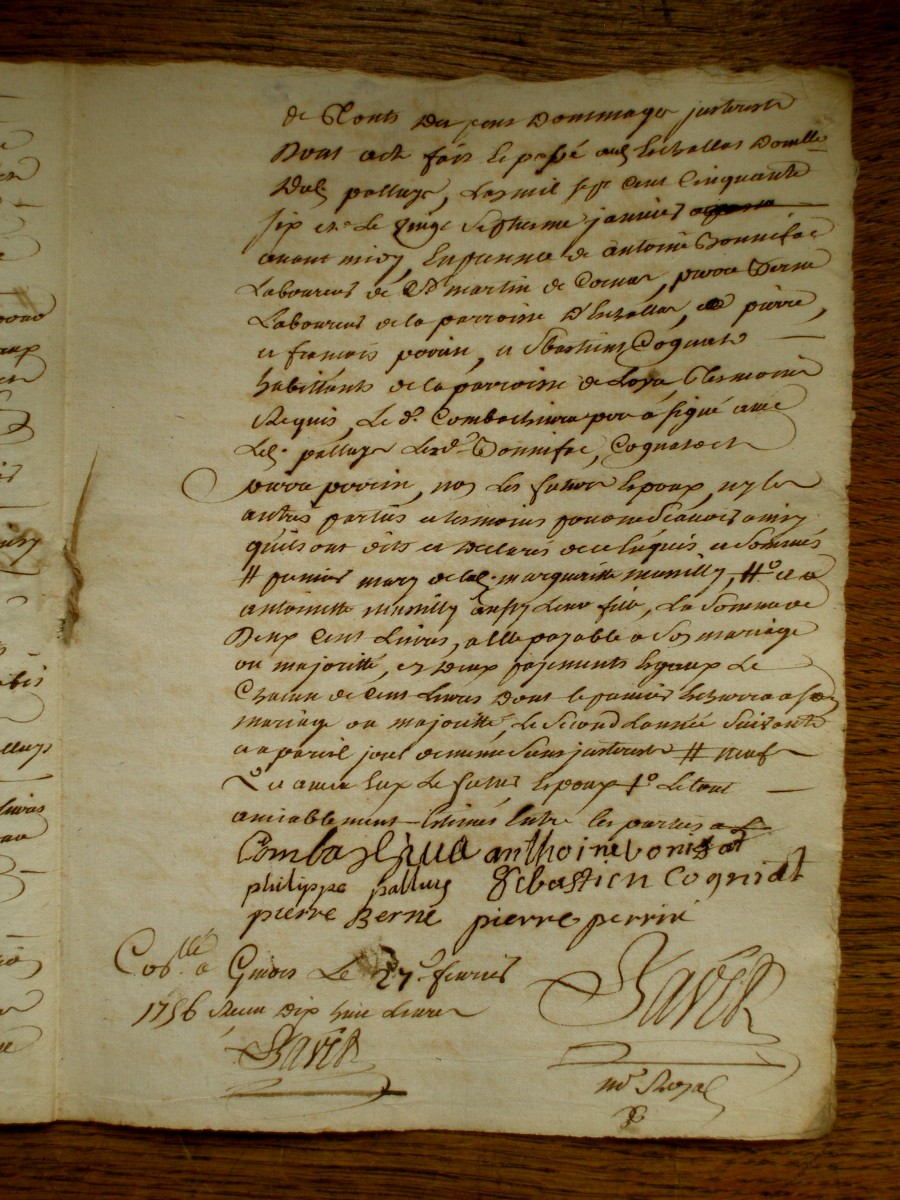 de touts Despens Dommages jnterests
Dont acte fait et passé aud. Eschallas Domille
Dud. palluys, Lan mil sept cent Cinquante
six et Le vingt septieme janvier
avant midy, En presence de antoine Bonnifac
Laboureur de St martin de Cornas, pierre Berne
Laboureur de la parroisse D'Echallas, et pierre,
et francois perrin, et sbastien Cogniat
habittants de la parroisse de Loyre Tesmoins
Requis, Le d. Combachirra pere a signé avec
Led. palluys Lesd. Bonnifac, Cogniat et
pierre perrin, non Les futurs Epoux, ny les
autres parties et tesmoins pour ne sçavoir ainsy
quils ont dits et Declarés de ce Enquis et Sommés
# premier mary de lad. margueritte musilly, # et a
antoinette musilly aussy Leur fille, La Somme de
Deux Cent Livres, a Elle payable a Son mariage
ou majoritté, en Deux payements Egaux de
Chacun de Cent Livres Dont le premier Echerra a son
mariage ou majoritté, Le Second Lannée Suivante
a pareil jour de meme Sans jnterests # neuf
avec Eux Le futur Epoux Le tout
amiablement Estimés Entre les parties
Combachirra anthoine bonifat
philippe palluy Sebastien Cogniat
pierre Berne pierre perrin
Con.llé a Givors Le 27e fevrier
1756 Receu Dix huit Livres
FaVER
FaVER
no.re Royal